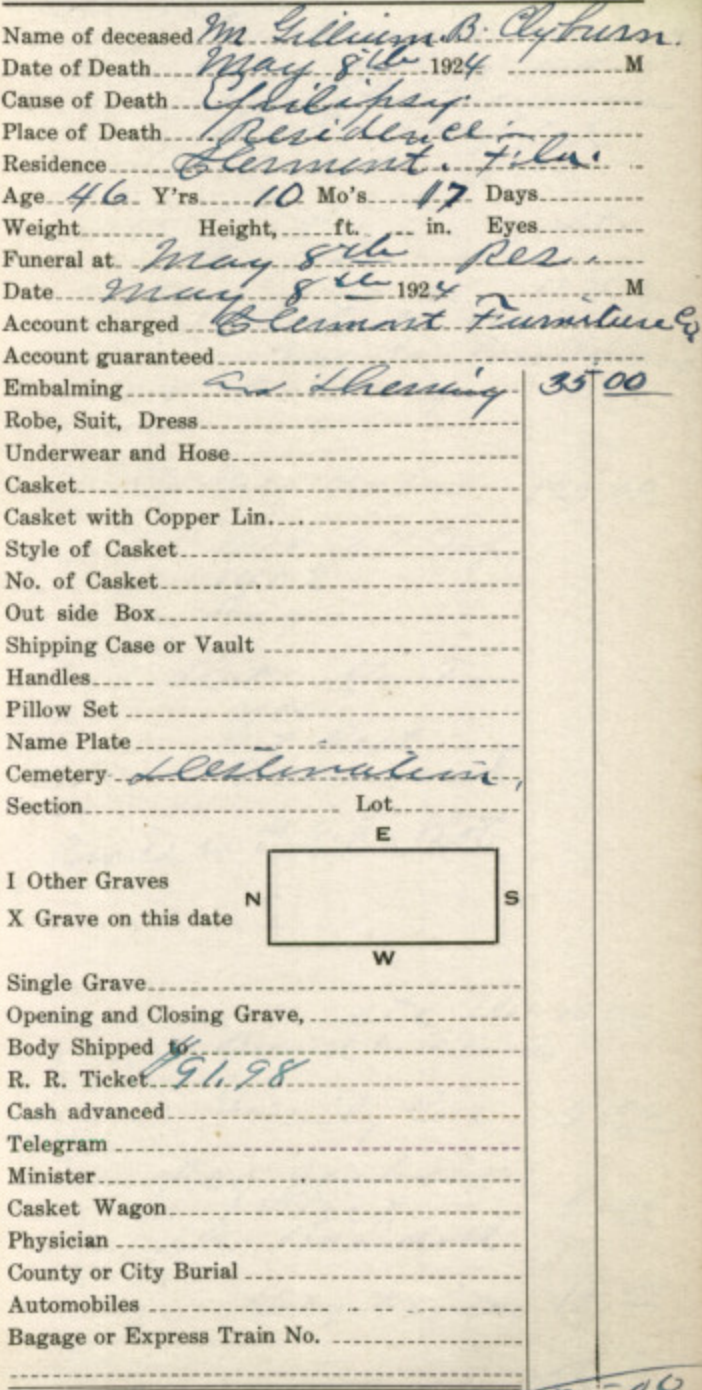 Name of deceased Mr Gillium B. Clyburn.
Date of Death May 8th 1924 M
Cause of Death Epilipsy
Place of Death Residence
Residence Clermont. Fla.
Age 46 Y'rs 10 Mo's 17 Days
Weight Height, ft. in. Eyes
Funeral at May 8th Res.
Date May 8th 1924 M
Account charged Clermont Furniture Co
Account guaranteed
Embalming and Shaving 35 00
Robe, Suit, Dress
Underwear and Hose
Casket
Casket with Copper Lin.
Style of Casket
No. of Casket
Out side Box
Shipping Case or Vault
Handles
Pillow Set
Name Plate
Cemetery Destination,
Section Lot
E
I Other Graves
N S
X Grave on this date
W
Single Grave
Opening and Closing Grave,
Body Shipped to
R. R. Ticket 91.98
Cash advanced
Telegram
Minister
Casket Wagon
Physician
County or City Burial
Automobiles
Bagage or Express Train No.